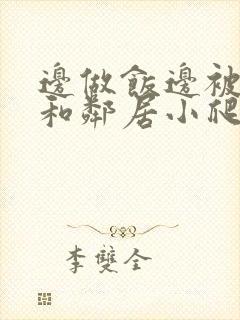 邊做飯邊被
和鄰居小爬
李雙全